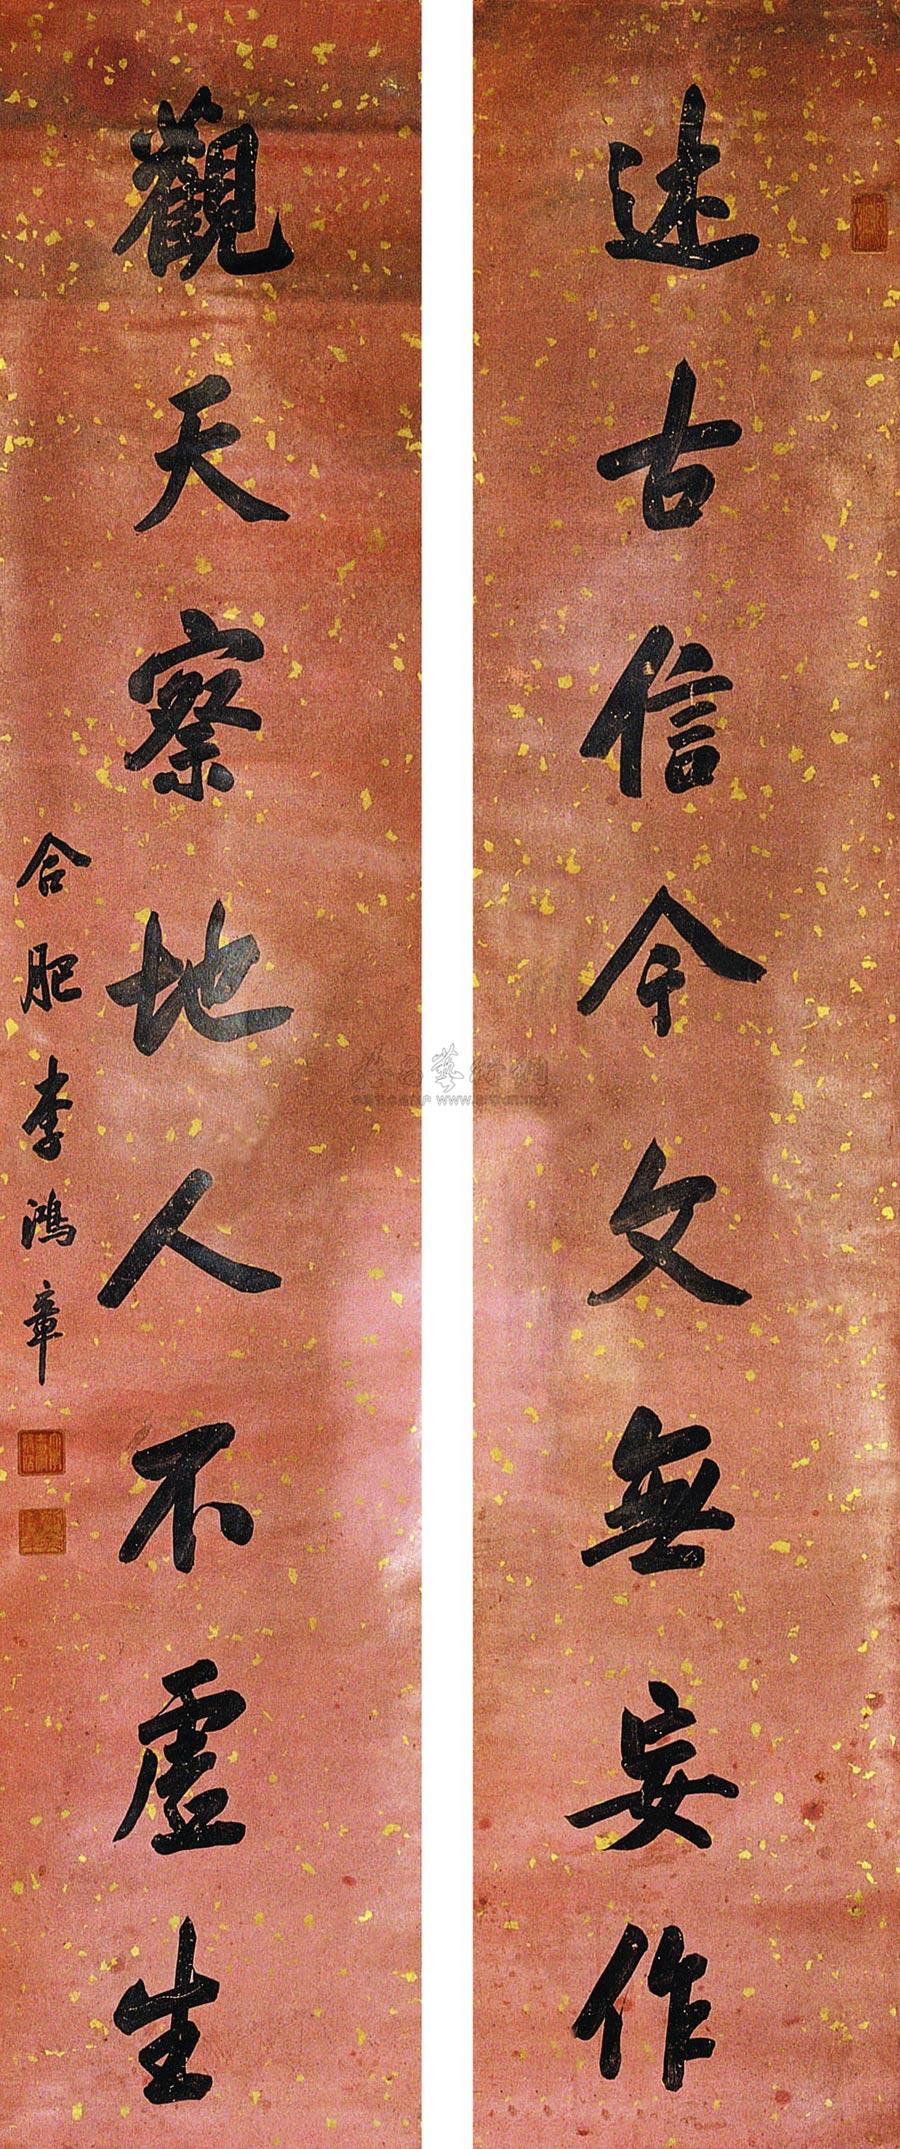 述古信今文無妄作
觀天察地人不虛生
合肥李鴻章